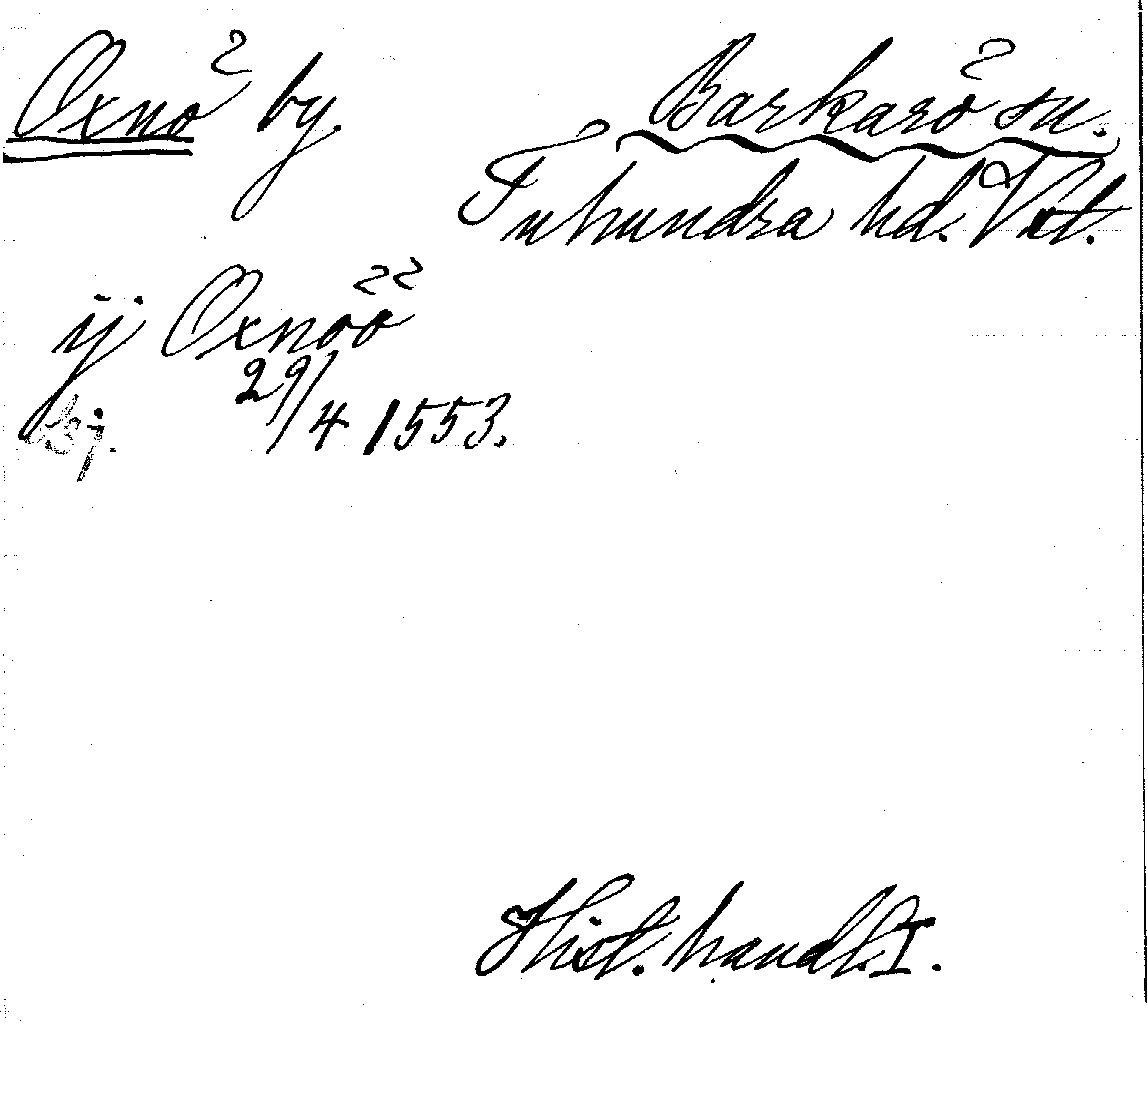 Oxnö by. Barkarö sn.
Tuhundra hd. Vstl.
ij Oxnöö
29/4 1553.
Hist. handl. I.